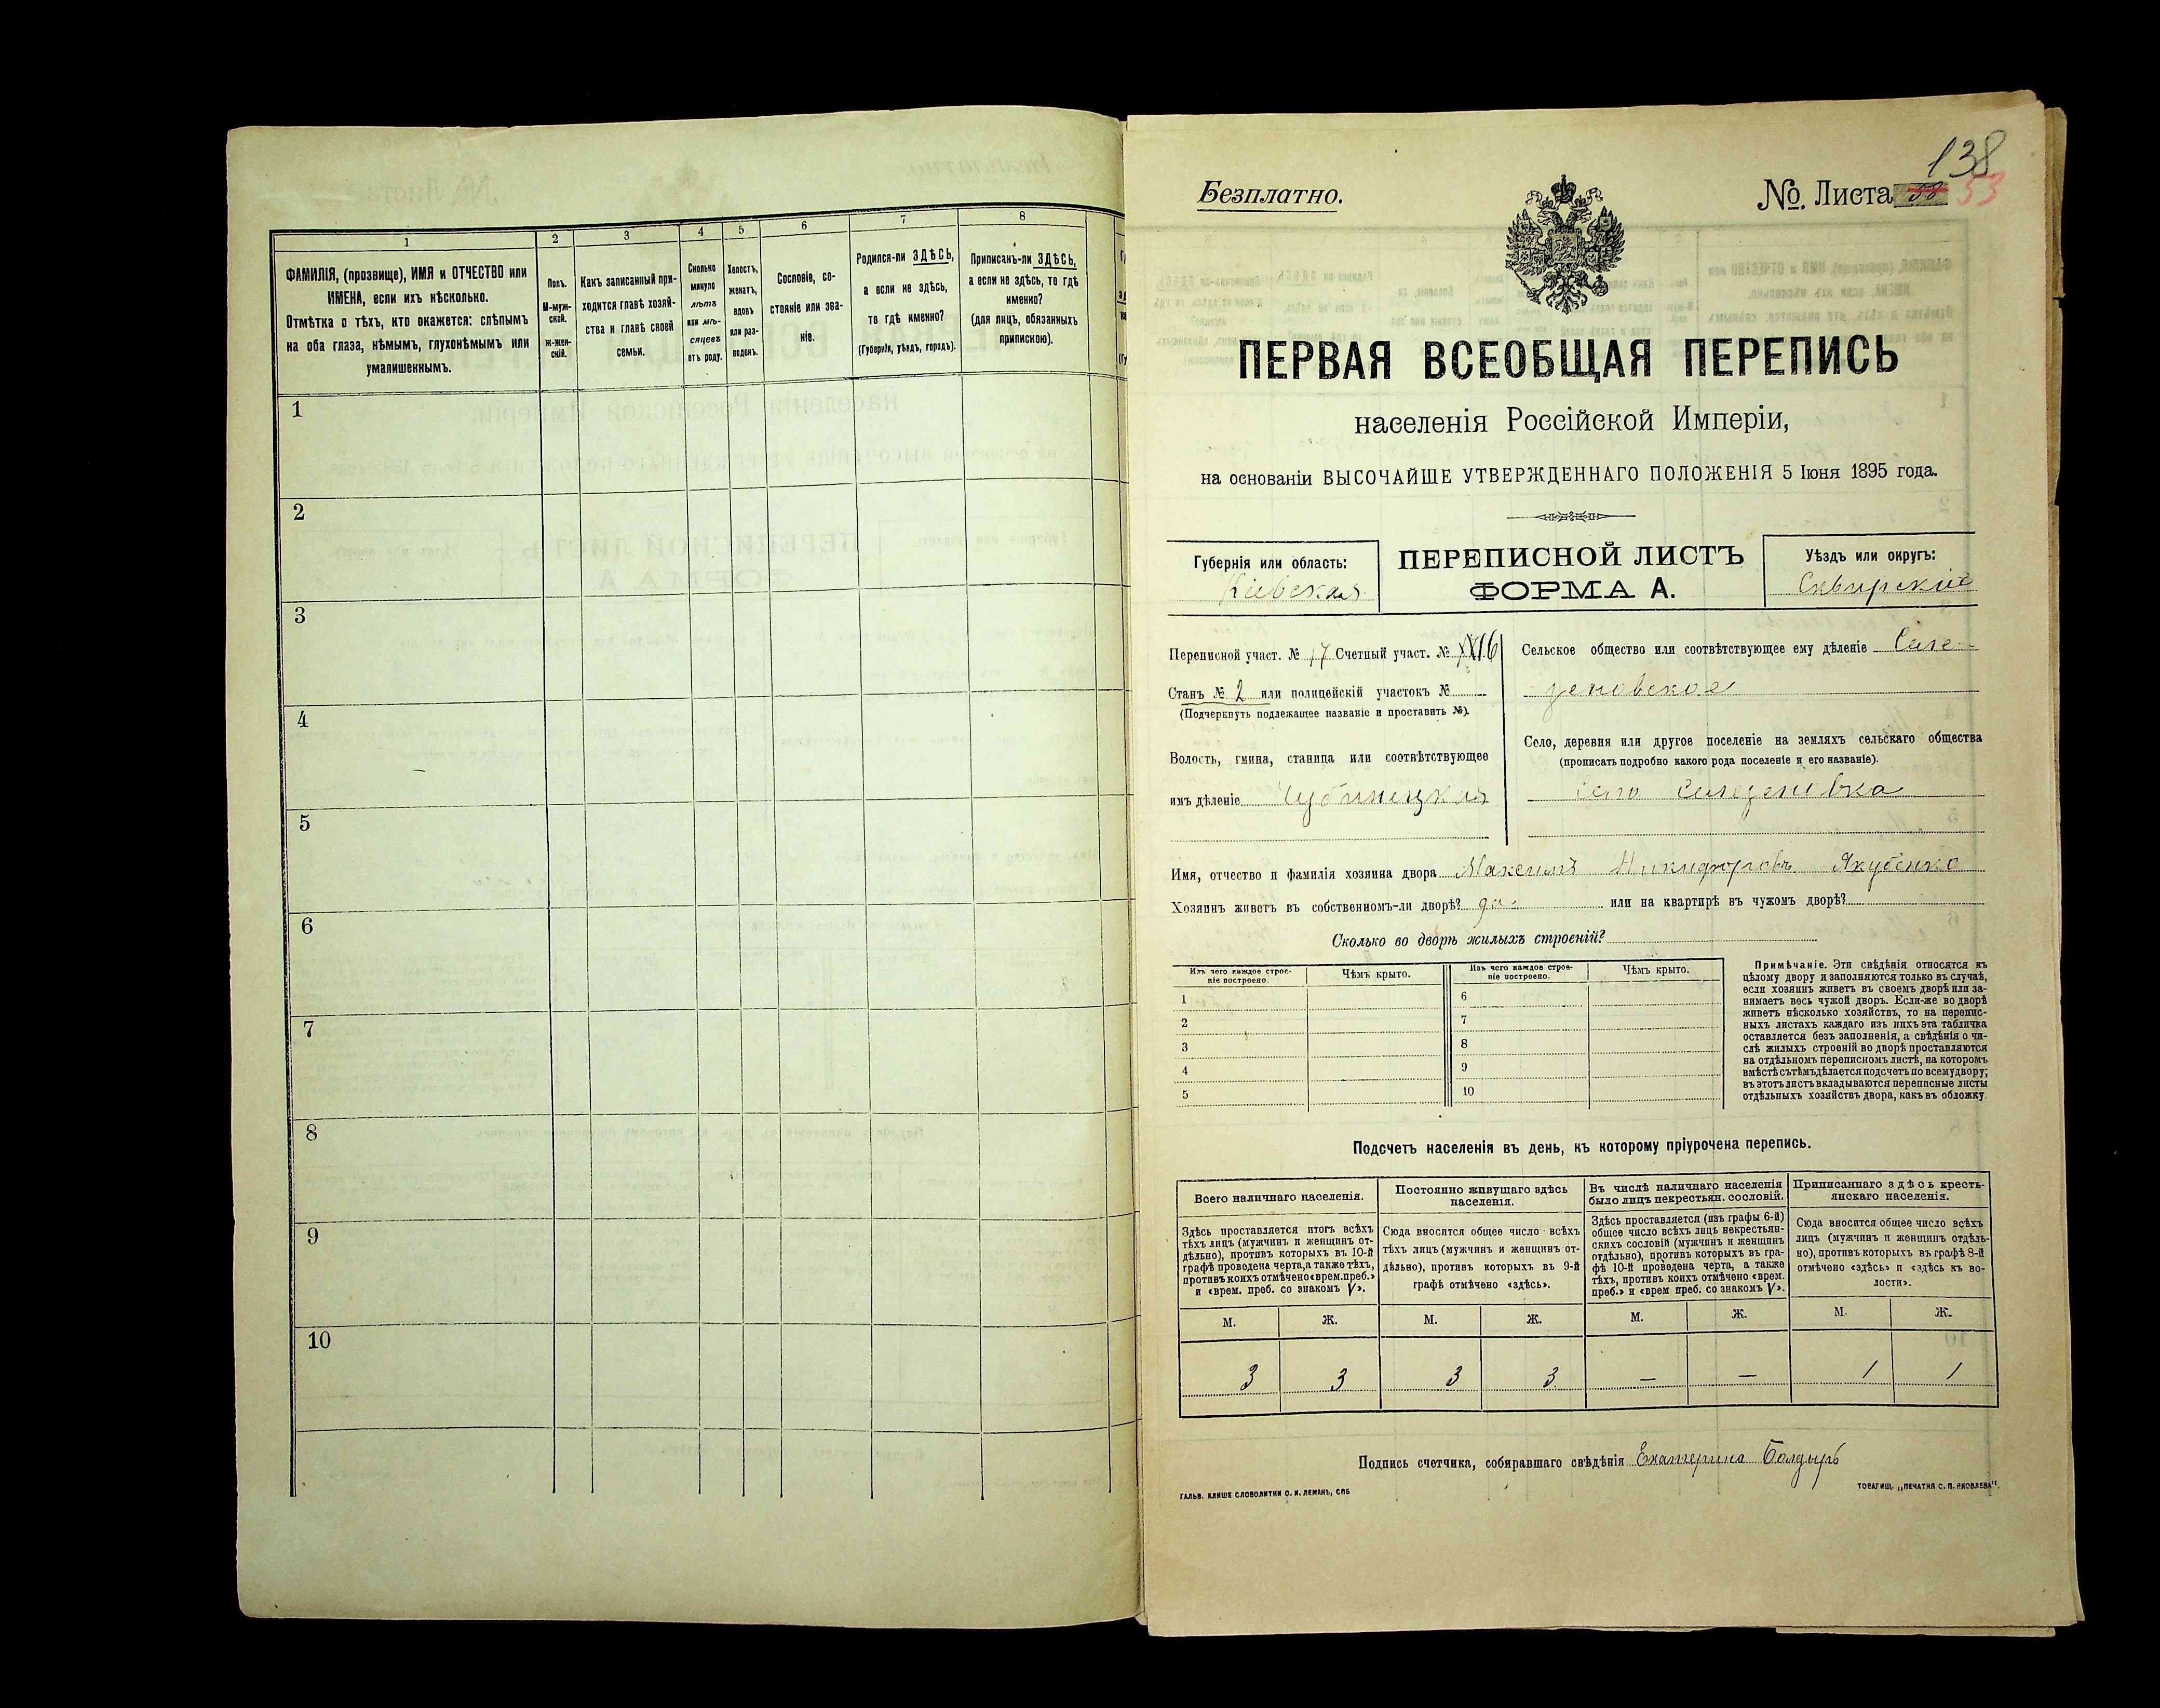 1
ФАМИЛІЯ, (прозвище), ИМЯ и ОТЧЕСТВО или
ИМЕНА, если ихъ нѣсколько.
Отмѣтка о тѣхъ, кто окажется: слѣпымъ
на оба глаза, нѣмымъ, глухонѣмымъ или
умалишеннымъ.
2
Полъ.
М-муж-
ской.
ж-жен-
скій.
3
Какъ записанный при-
ходится главѣ хозяй-
ства и главѣ своей
семьи.
4
Сколько
минуло
лѣтъ
или мѣ-
сяцевъ
отъ роду.
5
Холостъ,
женатъ,
вдовъ
или раз-
веденъ.
6
Сословіе, со-
стояніе или зва-
ніе.
7
Родился-ли ЗДѢСЬ,
а если не здѣсь,
то гдѣ именно?
(Губернія, уѣздъ, городъ).
8
Приписанъ-ли ЗДѢСЬ,
а если не здѣсь, то гдѣ
именно?
(для лицъ, обязанныхъ
припискою).
1
2
3
4
5
6
7
8
9
10
138
Безплатно.
№. Листа 53
ПЕРВАЯ ВСЕОБЩАЯ ПЕРЕПИСЬ
населенія Россійской Имперіи,
на основаніи ВЫСОЧАЙШЕ УТВЕРЖДЕННАГО ПОЛОЖЕНІЯ 5 Іюня 1895 года.
Губернія или область:
Кіевская
ПЕРЕПИСНОЙ ЛИСТЪ
ФОРМА А.
Уѣздъ или округъ:
Сквирскій
Переписной участ. № 17 Счетный участ. №
Станъ № 2 или полицейскій участокъ №
(Подчеркнуть подлежащее названіе и проставить №).
Волость, гмина, станица или соотвѣтствующее
имъ дѣленіе Чубинецкая
Сельское общество или соотвѣтствующее ему дѣленіе Селе-
зеновское
Село, деревня или другое поселеніе на земляхъ сельскаго общества
(прописать подробно какого рода поселеніе и его названіе).
село Селезеневка
Имя, отчество и фамилія хозяина двора Максимъ Никифоровъ Якубенко
Хозяинъ живетъ въ собственномъ-ли дворѣ? да или на квартирѣ въ чужомъ дворѣ?
Сколько во дворѣ жилыхъ строеній?
Изъ чего каждое строе-
ніе построено.
Чѣмъ крыто.
Изъ чего каждое строе-
ніе построено.
Чѣмъ крыто.
1
2
3
4
5
6
7
8
9
10
Примѣчаніе. Эти свѣдѣнія относятся къ
цѣлому двору и заполняются только въ случаѣ,
если хозяинъ живетъ въ своемъ дворѣ или за-
нимаетъ весь чужой дворъ. Если-же во дворѣ
живетъ нѣсколько хозяйствъ, то на перепис-
ныхъ листахъ каждаго изъ нихъ эта табличка
оставляется безъ заполненія, а свѣдѣнія о чи-
слѣ жилыхъ строеній во дворѣ проставляются
на отдѣльномъ переписномъ листѣ, на которомъ
вмѣстѣ съ тѣмъ дѣлается подсчетъ по всему двору;
въ этотъ листъ вкладываются переписные листы
отдѣльныхъ хозяйствъ двора, какъ въ обложку.
Подсчетъ населенія въ день, къ которому пріурочена перепись.
Всего наличнаго населенія.
Здѣсь проставляется итогъ всѣхъ
тѣхъ лицъ (мужчинъ и женщинъ от-
дѣльно), противъ которыхъ въ 10-й
графѣ проведена черта, а также тѣхъ,
противъ коихъ отмѣчено «врем. преб.»
и «врем. преб. со знакомъ V».
Постоянно живущаго здѣсь
населенія.
Сюда вносится общее число всѣхъ
тѣхъ лицъ (мужчинъ и женщинъ от-
дѣльно), противъ которыхъ въ 9-й
графѣ отмѣчено «здѣсь».
Въ числѣ наличнаго населенія
было лицъ некрестьян. сословій.
Здѣсь проставляется (изъ графы 6-й)
общее число всѣхъ лицъ некрестьян-
скихъ сословій (мужчинъ и женщинъ
отдѣльно), противъ которыхъ въ гра-
фѣ 10-й проведена черта, а также
тѣхъ, противъ коихъ отмѣчено «врем.
преб.» и «врем преб. со знакомъ V».
Приписаннаго здѣсь кресть-
янскаго населенія.
Сюда вносится общее число всѣхъ
лицъ (мужчинъ и женщинъ отдѣль-
но), противъ которыхъ въ графѣ 8-й
отмѣчено «здѣсь» и «здѣсь къ во-
лости».
М. Ж. М. Ж. М. Ж. М. Ж.
3 3 3 3 — — 1 1
Подпись счетчика, собиравшаго свѣдѣнія Екатерина Болдырь
ГАЛЬВ. КЛИШЕ СЛОВОЛИТНИ О. И. ЛЕМАНЪ, СПБ
ТОВАРИЩ. „ПЕЧАТНЯ С. П. ЯКОВЛЕВА".